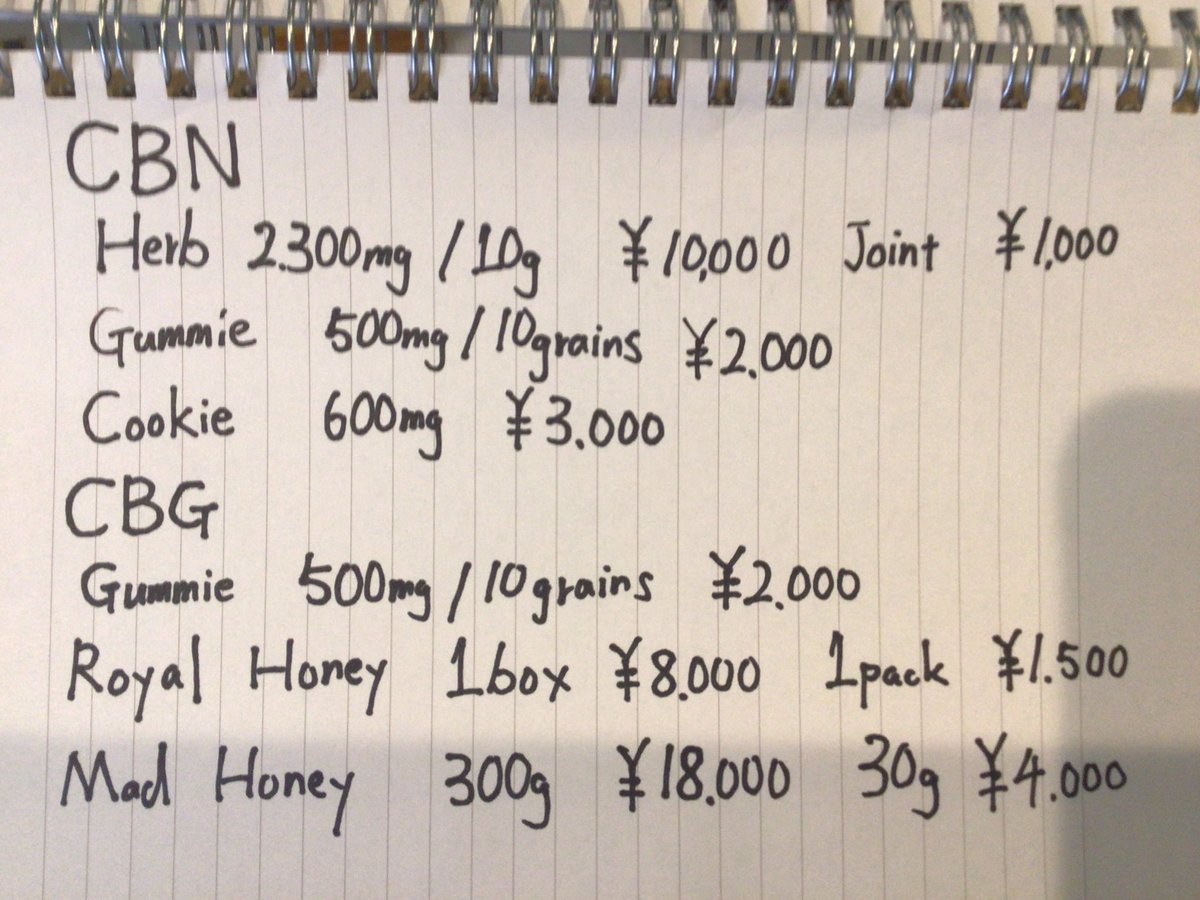 CBN
Herb 2.300mg / 10g ¥10,000 Joint ¥1,000
Gummie 500mg / 10grains ¥2.000
Cookie 600mg ¥3.000
CBG
Gummie 500mg / 10grains ¥2.000
Royal Honey 1box ¥8.000 1pack ¥1.500
Mad Honey 300g ¥18.000 30g ¥4.000